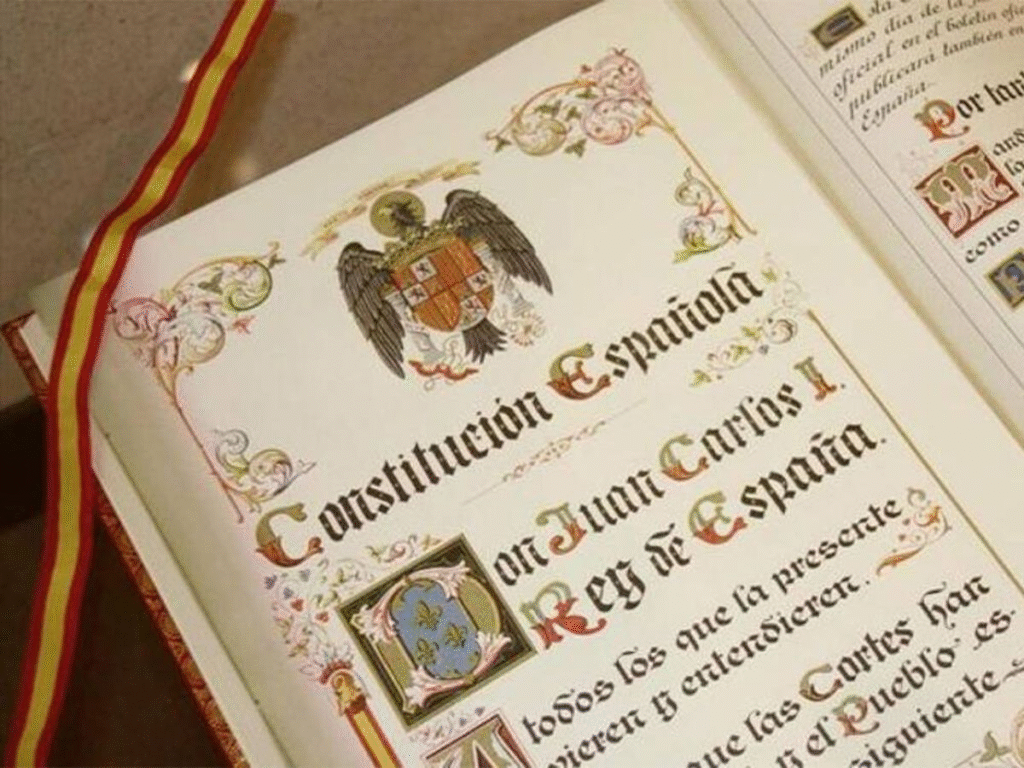 Constitución Española
Don Juan Carlos I.
Rey de España.
todos los que la presente
vieren y entendieren.
que las Cortes han
y el Pueblo es-
siguiente
Esta
mismo día de la
oficial en el boletín ofi
publicará también en
España.
Por tan
Mand
como